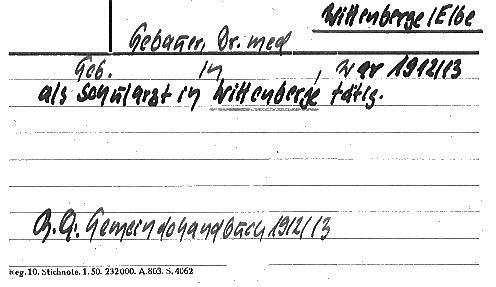 Wittenberge/Elbe
Gebauer, Dr. med
Geb. in , war 1912/13
als Schularzt in Wittenberge tätig.
Gemeindehandbuch 1912/13
Reg. 10. Stichnote. 1. 50. 232000. A. 803. S. 4062